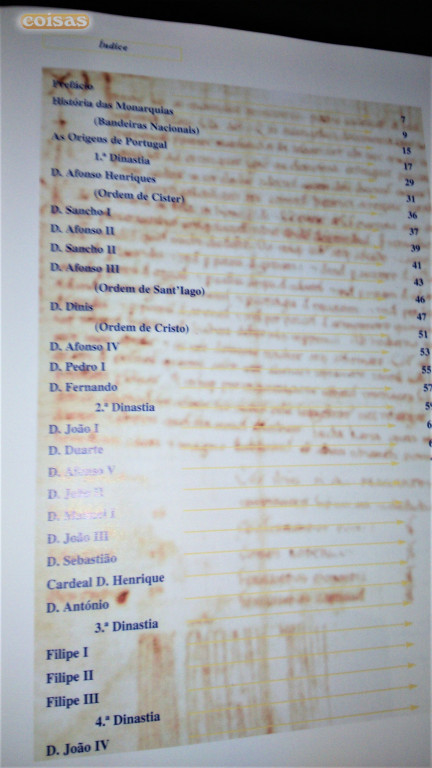 coisas
Índice
Prefácio 7
História das Monarquias 9
(Bandeiras Nacionais) 15
As Origens de Portugal 17
1.ª Dinastia 29
D. Afonso Henriques 31
(Ordem de Cister) 36
D. Sancho I 37
D. Afonso II 39
D. Sancho II 41
D. Afonso III 43
(Ordem de Sant'Iago) 46
D. Dinis 47
(Ordem de Cristo) 51
D. Afonso IV 53
D. Pedro I 55
D. Fernando 57
2.ª Dinastia
D. João I
D. Duarte
D. Afonso V
D. João II
D. Manuel I
D. João III
D. Sebastião
Cardeal D. Henrique
D. António
3.ª Dinastia
Filipe I
Filipe II
Filipe III
4.ª Dinastia
D. João IV